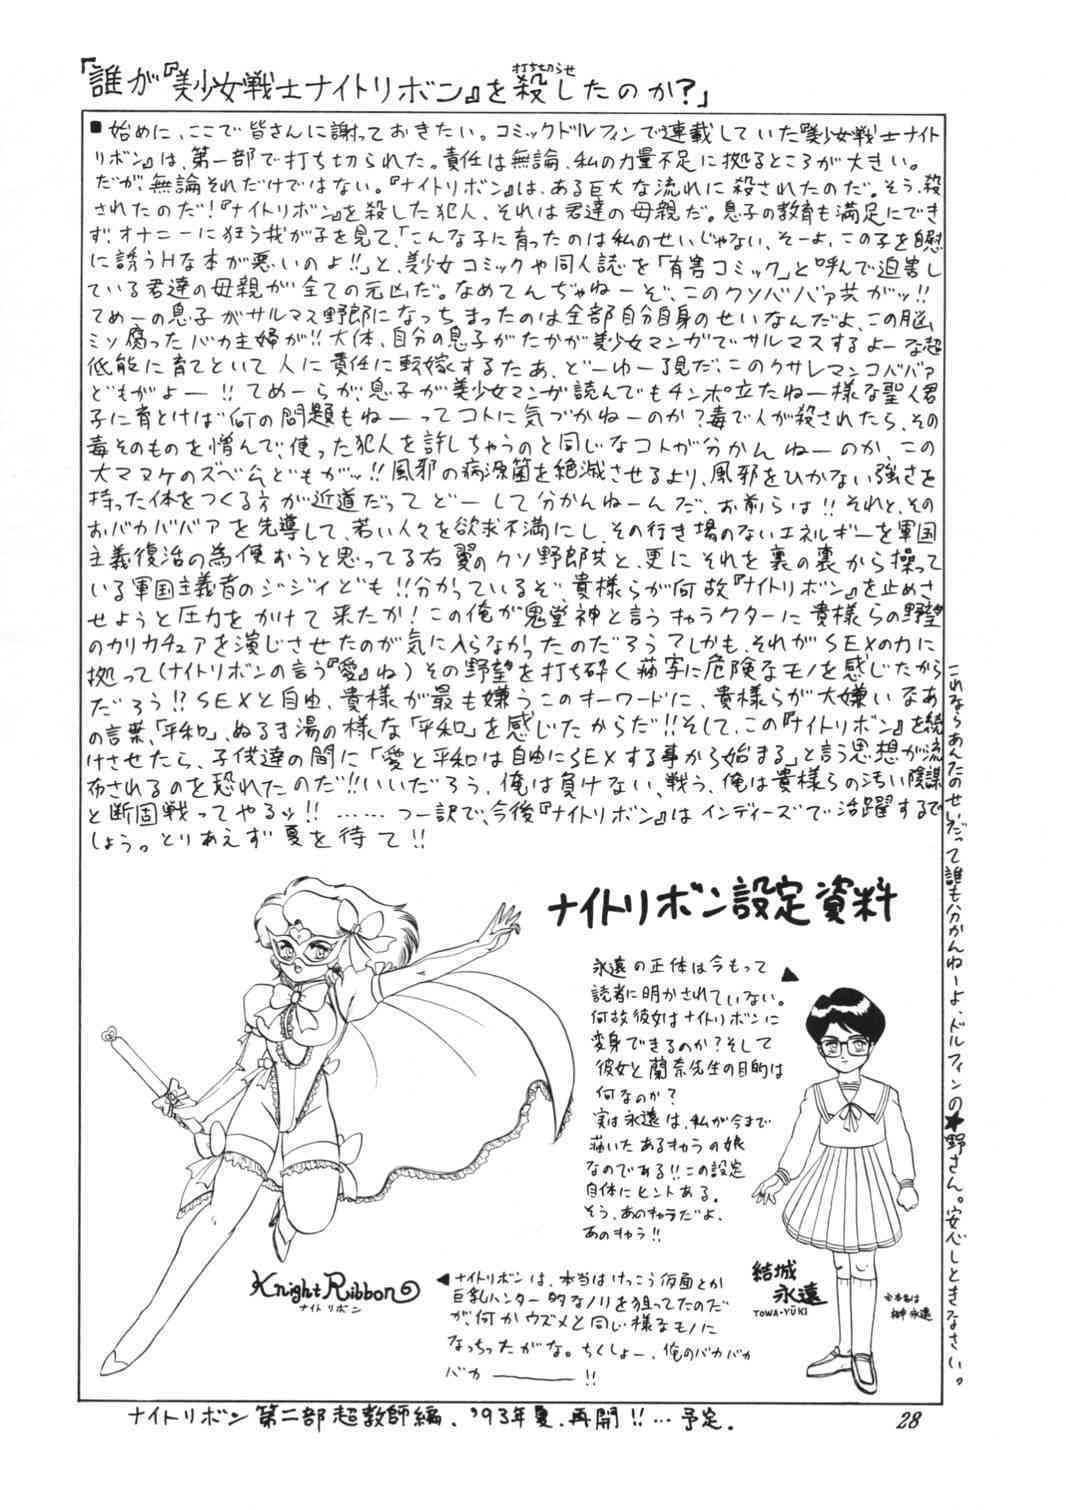 『誰が『美少女戦士ナイトリボン』を殺したのか？」
打ち切らせ
■始めに、ここで皆さんに謝っておきたい。コミックドルフィンで連載していた『美少女戦士ナイト
リボン』は、第一部で打ち切られた。責任は無論、私の力量不足に拠るところが大きい。
だが、無論それだけではない。『ナイトリボン』は、ある巨大な流れに殺されたのだ。そう、殺
されたのだ！『ナイトリボン』を殺した犯人、それは君達の母親だ。息子の教育も満足にでき
ず、オナニーに狂う我が子を見て、「こんな子に育ったのは私のせいじゃない、そーよ、この子を自慰
に誘うHな本が悪いのよ!!」と、美少女コミックや同人誌を「有害コミック」と呼んで迫害し
ている君達の母親が全ての元凶だ。なめてんぢゃねーぞ、このクソババァ共がッ!!
てめーの息子がサルマス野郎になっちまったのは全部自分自身のせいなんだよ、この脳
ミソ腐ったバカ主婦が!!大体、自分の息子がたかが美少女マンガでサルマスするよーな超
低能に育てといて人に責任に転嫁するたあ、どーゆー了見だ、このクサレマンコババァ
どもがよー!!てめーらが、息子が美少女マンガ読んでもチンポ立たねー様な聖人君
子に育とけば何の問題もねーってコトに気づかねーのか？毒で人が殺されたら、その
毒そのものを憎んで、使った犯人を許しちゃうのと同じなコトが分かんねーのか、この
大マヌケのズベ公どもがッ!!風邪の病源菌を絶滅させるより、風邪をひかない強さを
持った体をつくる方が近道だってどーして分かんねーんだ、お前らは!!それと、その
おバカババアを先導して、若い人々を欲求不満にし、その行き場のないエネルギーを軍国
主義復活の為使おうと思ってる右翼のクソ野郎共と、更にそれを裏の裏から操って
いる軍国主義者のジジイども!!分かっているぞ、貴様らが何故『ナイトリボン』を止めさ
せようと圧力をかけて来たか！この俺が鬼堂神と言うキャラクターに貴様らの野望
のカリカチュアを演じさせたのが気に入らなかったのだろう？しかも、それがSEXの力に
拠って(ナイトリボンの言う『愛』ね)その野望を打ち砕く描写に危険なモノを感じたから
だろう!?SEXと自由、貴様が最も嫌うこのキーワードに、貴様らが大嫌いなあ
の言葉、「平和」、ぬるま湯の様な「平和」を感じたからだ!!そして、この『ナイトリボン』を続
けさせたら、子供達の間に「愛と平和は自由にSEXする事から始まる」と言う思想が流
布されるのを恐れたのだ!!いいだろう、俺は負けない、戦う、俺は貴様らの汚い陰謀
と断固戦ってやるッ!!……つー訳で、今後『ナイトリボン』はインディーズで活躍するで
しょう。とりあえず夏を待て!!
これならあんたのせいだって誰も分かんねーよ、ドルフィンの★野さん。安心しときなさい。
ナイトリボン設定資料
永遠の正体は今もって
読者に明かされていない。
何故彼女はナイトリボンに
変身できるのか？そして
彼女と蘭奈先生の目的は
何なのか？
実は永遠は、私が今まで
描いたあるキャラの娘
なのである!!この設定
自体にヒントある。
そう、あのキャラだよ、
あのキャラ!!
結城
永遠
TOWA・YŪKI
Knight Ribbon
ナイトリボン
◀ナイトリボンは、本当はけっこう仮面とか
巨乳ハンター的なノリを狙ってたのだ
が、何かウズメと同じ様なモノに
なっちったがな。ちくしょー、俺のバカバカ
バカ――――!!
ナイトリボン第二部超教師編、'93年夏、再開!!…予定。
28